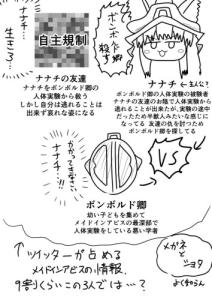 ナナチ…
生きろ…
自主規制
ボンボルド卿
殺す
ナナチ
←主人公?
ナナチの友達
ナナチをボンボルド卿の
人体実験から救う
しかし自分は逃れることは
出来ず哀れな姿になる
ボンボルド卿の人体実験の被験者
ナナチの友達のお陰で人体実験から
逃れることが出来たが、実験の途中
だったため半獣人みたいな感じに
なってる 友達の仇を討つため
ボンボルド卿を探してる
かかってきなさい、
ナナチ…!!
VS
ボンボルド卿
幼い子どもを集めて
メイドインアビスの最深部で
人体実験をしている悪い学者
ツイッターが占める
メイドインアビスの情報、
9割くらいこの3人では…?
メガネ
と
ショタ
よくわからん